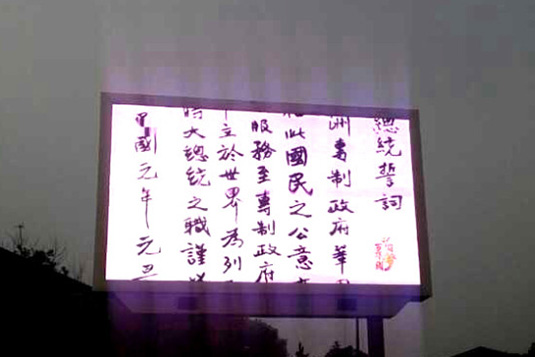 總統誓詞
洲專制政府鞏
此國民之公意
服務至專制政府
立於世界為列
時大總統之職謹以
中國元年元旦